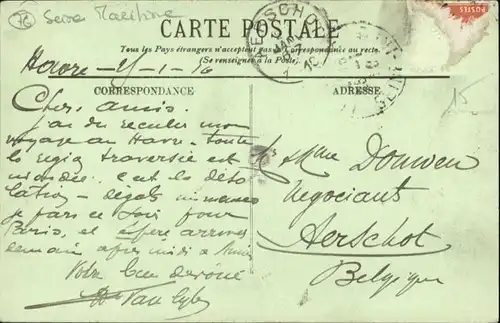 76 Seine Maritime
CARTE POSTALE
Tous les Pays étrangers n'acceptent pas la Correspondance au recto.
(Se renseigner à la Poste)
POSTES
15
CORRESPONDANCE
ADRESSE
Chers amis.
J'ai du reculer mon
voyage au Havre. Toute
la région traversée est
inondée. C'est la déso
lation - dégats immenses
Je pars ce soir pour
Paris, et espère arriver
demain après midi à
Votre bien dévoué
Mr & Mme Douwen
Négociants
Aerschot
Belgique